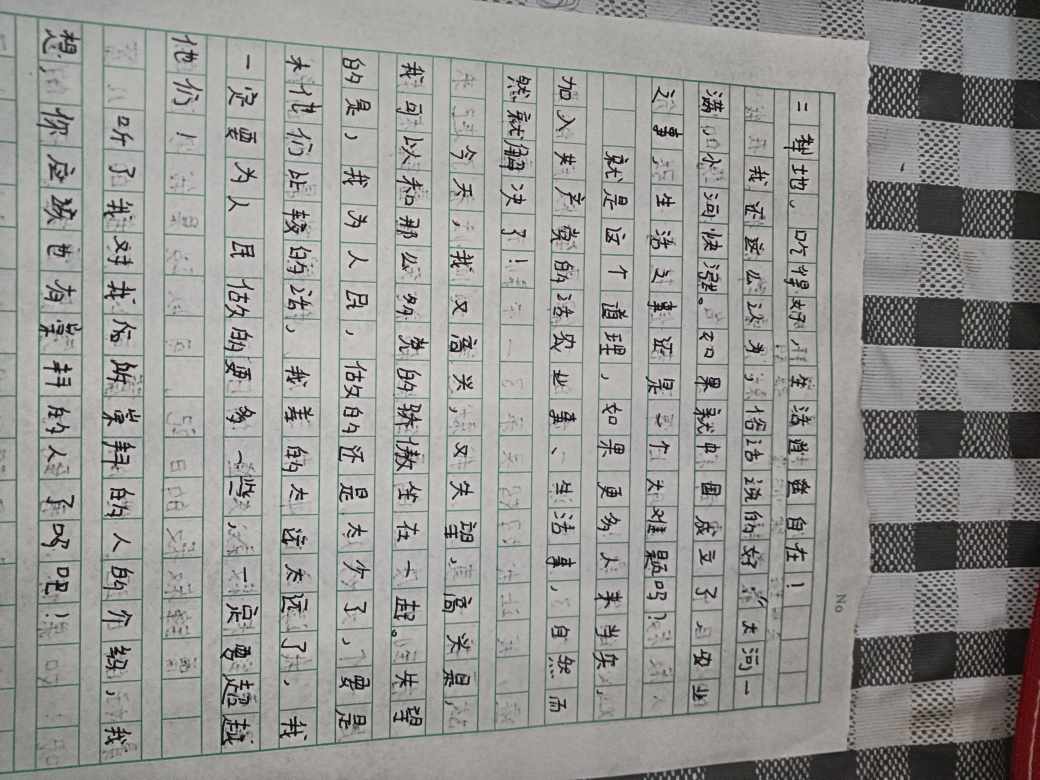 二犁地、吃得好，生活甜蜜自在！
我证这么认为，俗话说的好“大河一
满，小河快涨。如果就中国成立了，农业
之事，生活之事还是一个大难题吗？
就是这个道理，如果更多人来当兵，
加入共产党的话农业事、生活事，自然而
然就解决了！
今天，我又高兴，又失望，高兴是，
我可以和那么多党的骄傲坐在一起。失望
的是，我为人民，做的还是太少了，要是
未他们比较的话，我差的太远太远了，我
一定要为人民做的更多一些，一定要超越
他们！
听了我对我伯所崇拜的人的介绍，我
想，你应该也有崇拜的人了吧！
No